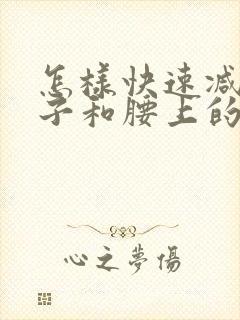 怎樣快速減
子和腰上的
心之夢傷